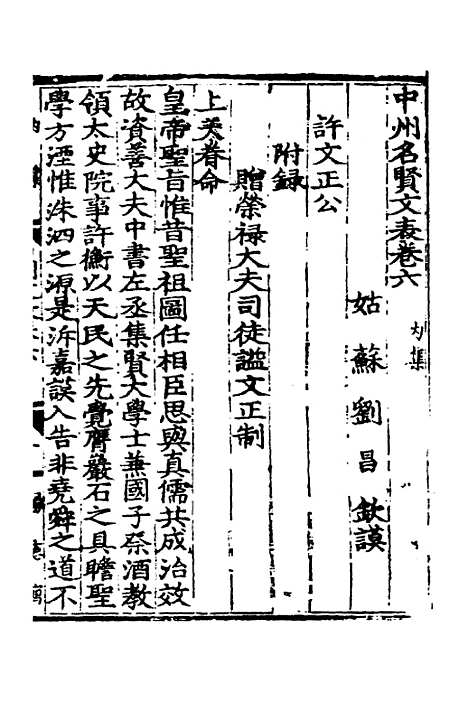 中州名賢文表卷六 内集
姑蘇劉昌欽謨
許文正公
附錄
贈榮祿大夫司徒謚文正制
上天眷命
皇帝聖旨惟昔聖祖圖任相臣思與真儒共成治效
故資善大夫中書左丞集賢大學士兼國子祭酒教
領太史院事許衡以天民之先覺膺巖石之具瞻聖
學方湮惟洙泗之源是泝嘉謨入告非堯舜之道不